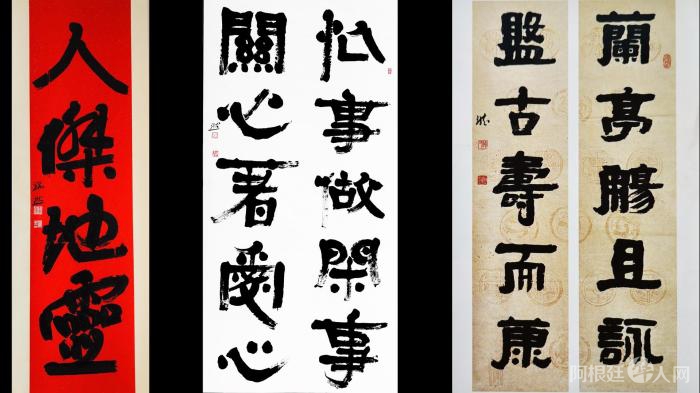 人傑地靈
忙事做閑事
關心著愛心
蘭亭觴且詠
盤古壽而康
阿根廷华人网